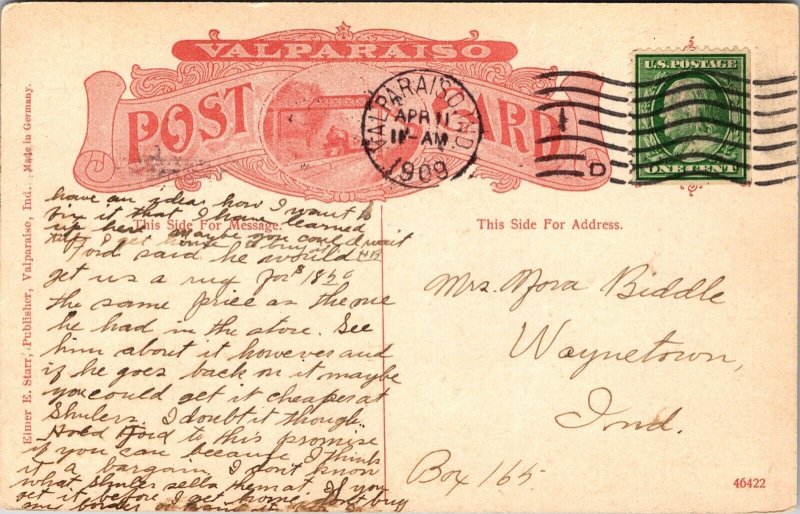 VALPARAISO
POST CARD
VALPARAISO, IND.
APR 11
AM
1909
D
U.S. POSTAGE
ONE CENT
This Side For Message.
This Side For Address.
have an idea how I want to
fix it that I have learned
up here. Maybe you could wait
till I get home to buy it
Ford said he would
get us a rug for $18.50
the same price as the one
he had in the store. See
him about it however and
if he goes back on it maybe
you could get it cheaper at
Shulers. I doubt it though.
Hold Ford to this promise
if you can because I think
it a bargain. I don't know
what Shuler sells them at. If you
get it before I get home, don't buy
any border
Mrs. Nora Biddle
Waynetown,
Ind.
Box 165
46422
Elmer E. Starr, Publisher, Valparaiso, Ind. Made in Germany.